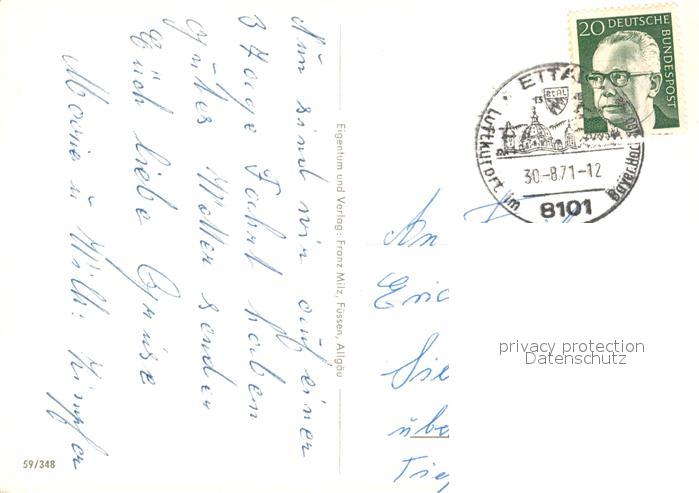 Nun sind wir auf einer
3 Tage Fahrt haben
gutes Wetter senden
Euch liebe Grüsse
Maria u. Willi
Eigentum und Verlag: Franz Milz, Füssen, Allgäu
59/348
20 DEUTSCHE BUNDESPOST
ETTAL
Luftkurort im Bayer. Hoch
30.-8.71-12
8101
An
Eric
privacy protection
Datenschutz